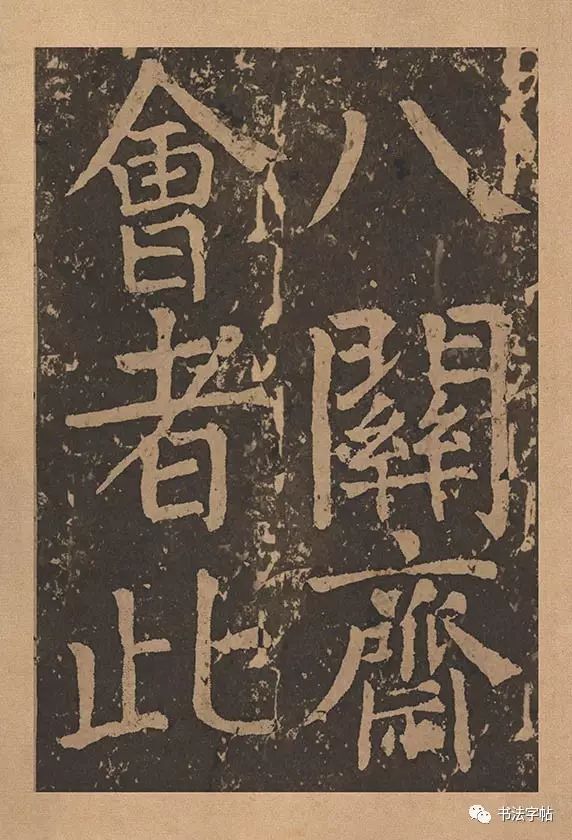 八關齋
會者此
书法字帖